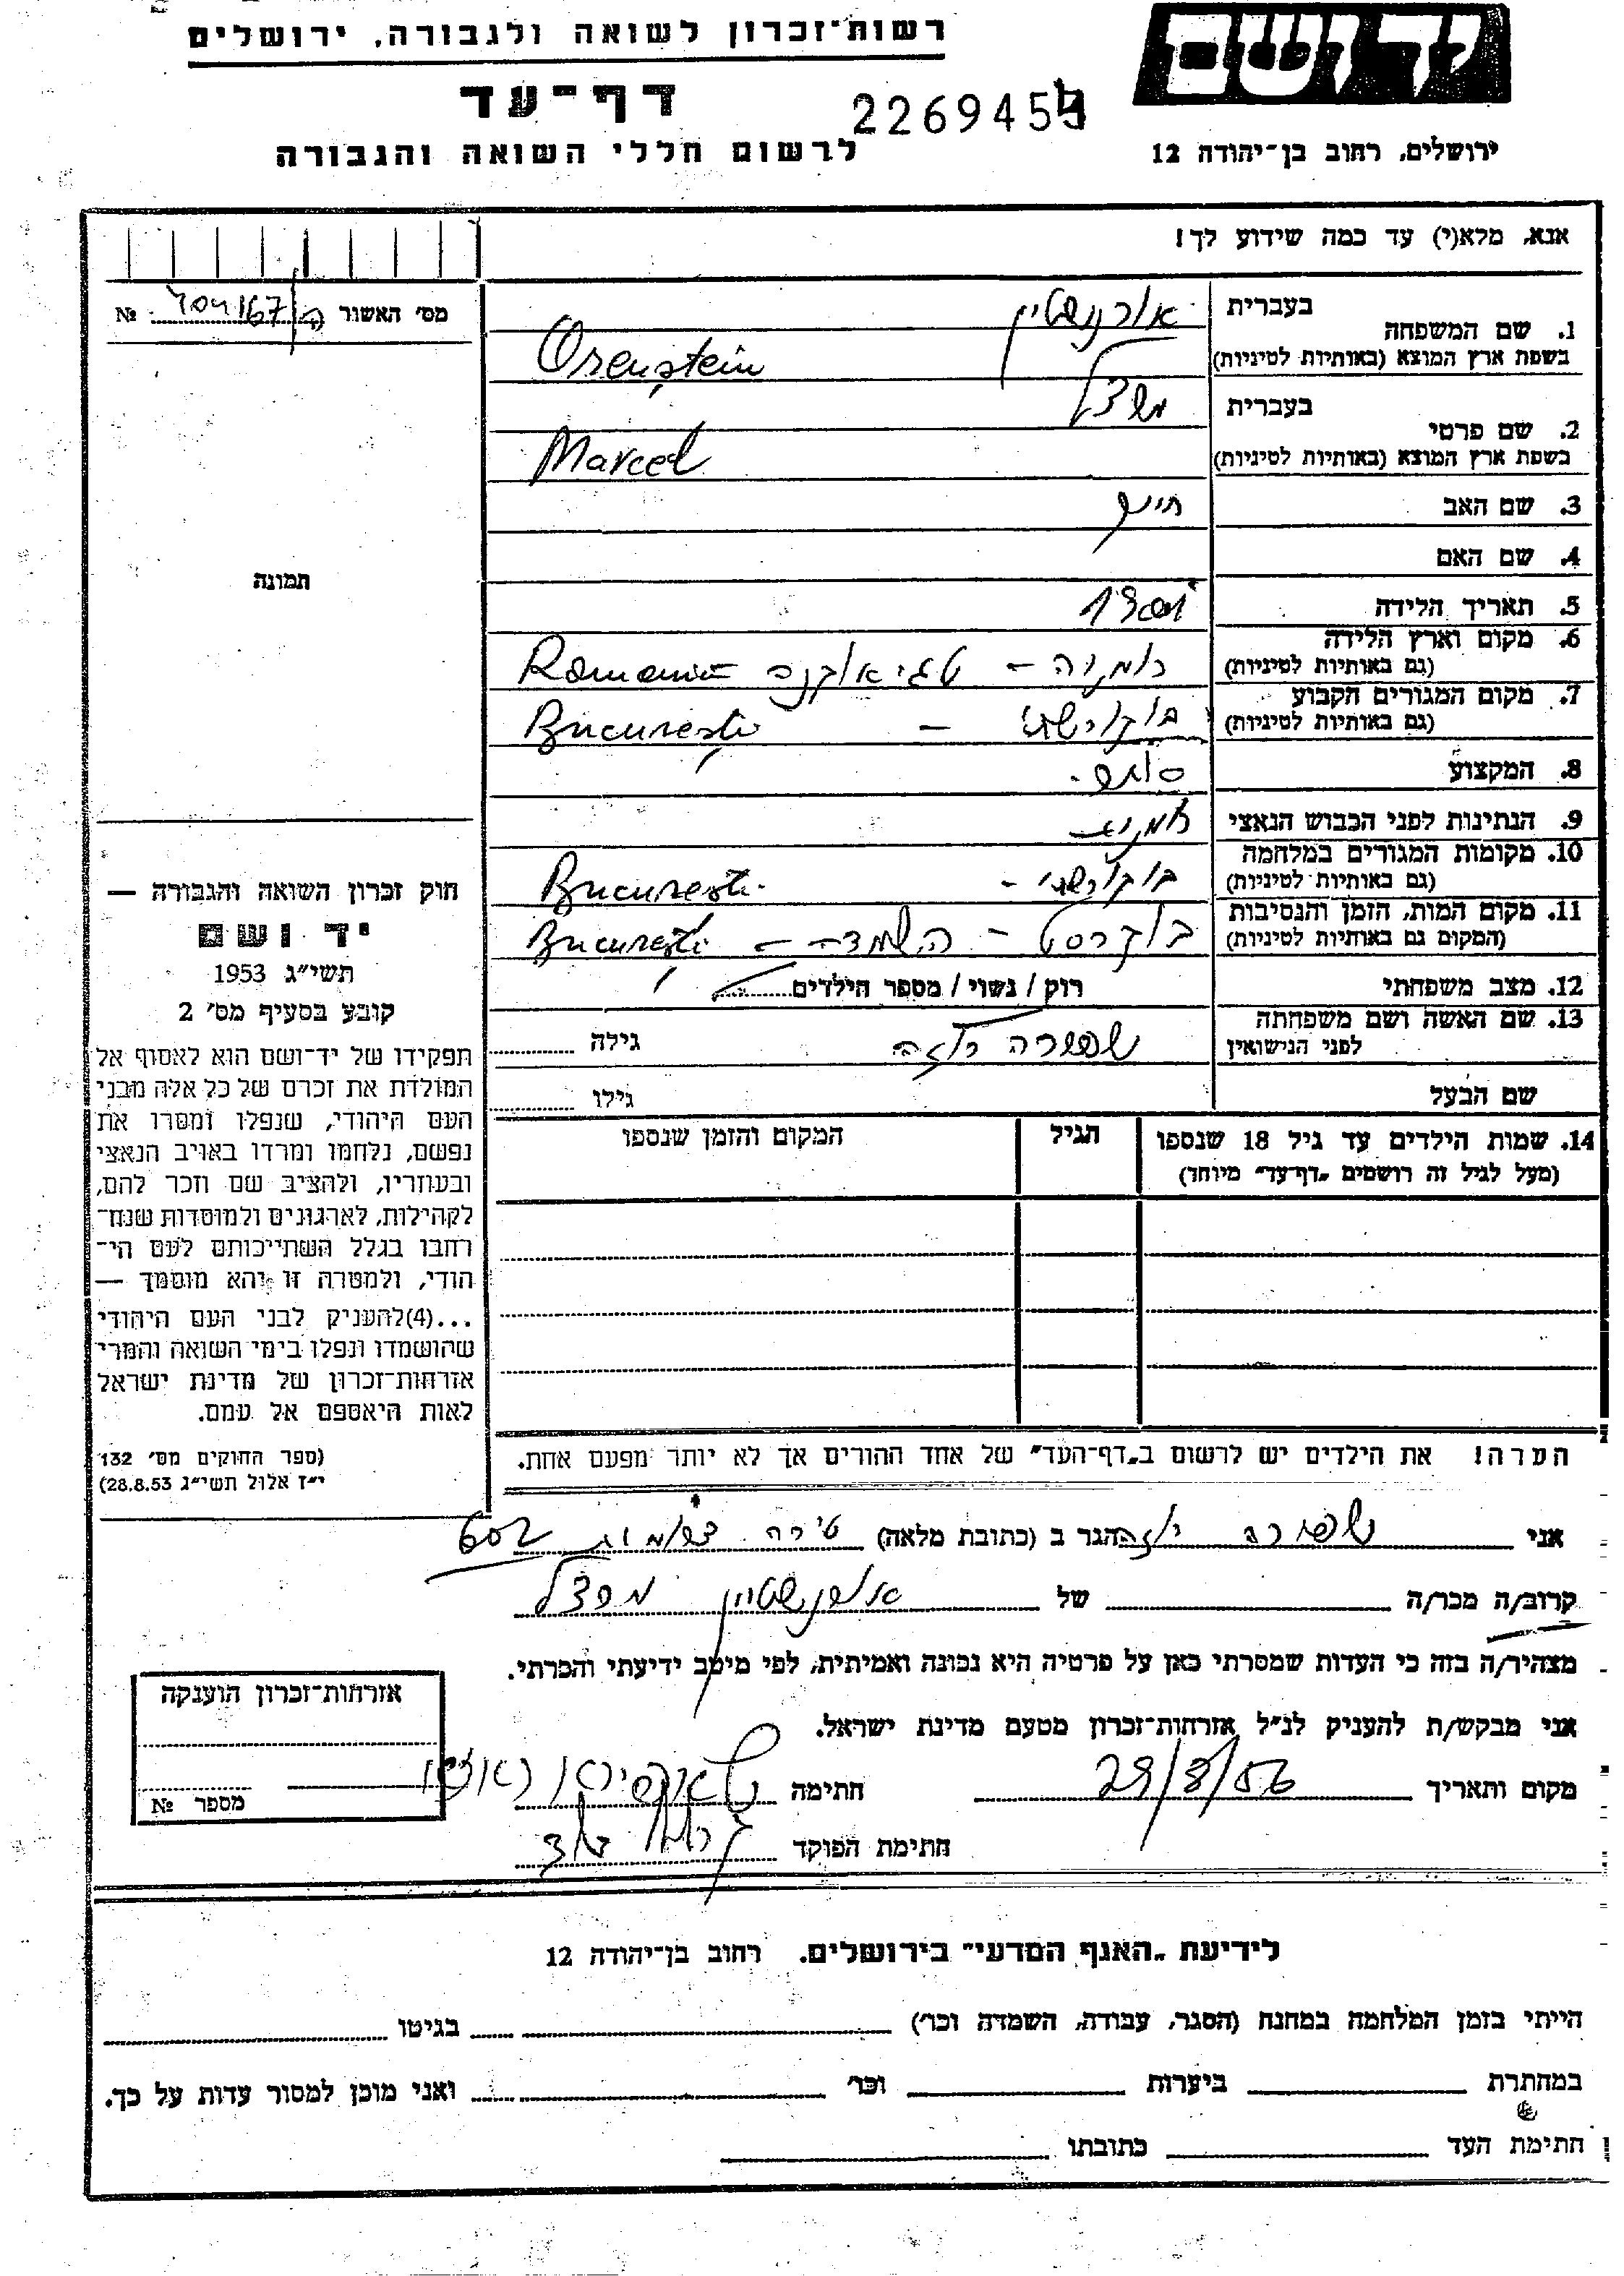 רשות־זכרון לשואה ולגבורה, ירושלים
יד ושם
דף־עד
226945
לרשום חללי השואה והגבורה
ירושלים, רחוב בן־יהודה 12
אנא, מלא(י) עד כמה שידוע לך!
מס׳ האשור №
1. שם המשפחה
בעברית אורנשטיין
בשפת ארץ המוצא (באותיות לטיניות) Orenstein
2. שם פרטי
בעברית מרצל
בשפת ארץ המוצא (באותיות לטיניות) Marcel
3. שם האב חיים
4. שם האם
5. תאריך הלידה 1901
6. מקום וארץ הלידה
(גם באותיות לטיניות) רומניה – Romania
7. מקום המגורים הקבוע
(גם באותיות לטיניות) בוקורשט – Bucureşti
8. המקצוע
9. הנתינות לפני הכבוש הנאצי
10. מקומות המגורים במלחמה
(גם באותיות לטיניות) בוקורשטי – Bucuresti
11. מקום המות, הזמן והנסיבות
(המקום גם באותיות לטיניות) בוקרסט – השמדה – Bucureşti
12. מצב משפחתי רווק / נשוי / מספר הילדים
13. שם האשה ושם משפחתה
לפני הנישואין גילה
שם הבעל גילו
14. שמות הילדים עד גיל 18 שנספו
(מעל לגיל זה רושמים „דף־עד״ מיוחד)
הגיל
המקום והזמן שנספו
תמונה
חוק זכרון השואה והגבורה —
יד ושם
תשי״ג 1953
קובע בסעיף מס׳ 2
תפקידו של יד־ושם הוא לאסוף אל
המולדת את זכרם של כל אלה מבני
העם היהודי, שנפלו ומסרו את
נפשם, נלחמו ומרדו באויב הנאצי
ובעוזריו, ולהציב שם וזכר להם,
לקהילות, לארגונים ולמוסדות שנח־
רבו בגלל השתייכותם לעם הי־
הודי, ולמטרה זו יהא מוסמך —
...(4)להעניק לבני העם היהודי
שהושמדו ונפלו בימי השואה והמרי
אזרחות־זכרון של מדינת ישראל
לאות היאספם אל עמם.
(ספר החוקים מס׳ 132
י״ז אלול תשי״ג 28.8.53)
הערה! את הילדים יש לרשום ב„דף־העד״ של אחד ההורים אך לא יותר מפעם אחת.
אני הגר ב (כתובת מלאה) טירה 602
קרוב/ה מכר/ה של אורנשטיין מרצל
מצהיר/ה בזה כי העדות שמסרתי כאן על פרטיה היא נכונה ואמיתית, לפי מיטב ידיעתי והכרתי.
אני מבקש/ת להעניק לנ״ל אזרחות־זכרון מטעם מדינת ישראל.
מקום ותאריך 29/8/56 חתימה
חתימת הפוקד
אזרחות־זכרון הוענקה
מספר №
לידיעת „האגף המדעי״ בירושלים. רחוב בן־יהודה 12
הייתי בזמן המלחמה במחנה (הסגר, עבודה, השמדה וכו׳) בגיטו
במחתרת ביערות וכו׳ ואני מוכן למסור עדות על כך.
חתימת העד כתובתו